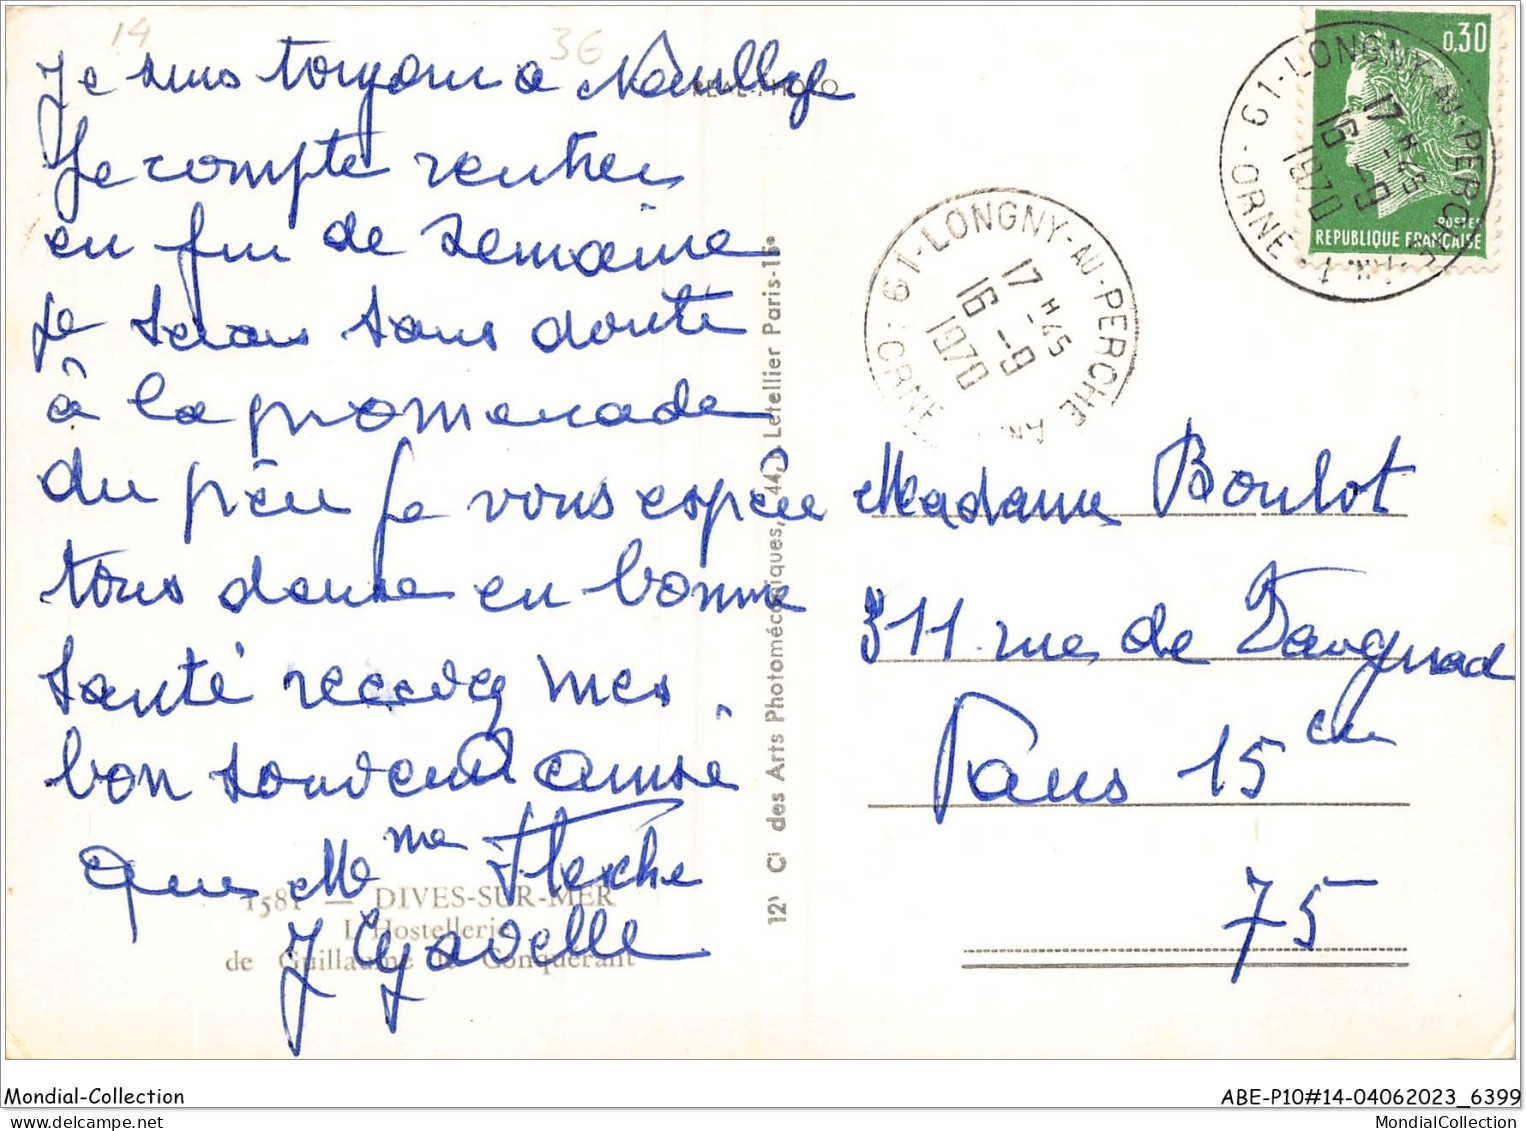 14
36
Je suis toujours a
REAL-PHOTO
Je compte rentrer
en fin de semaine
je serais sans doute
à la promenade
du Je vous espère
tous deux en bonne
santé recevez mes
bon souvenir ainsi
que Mme
J
1581 — DIVES-SUR-MER
L'Hostellerie
de Guillaume le Conquérant
des Arts Photomécaniques, 44, Letellier Paris-15e
61-LONGNY-AU-PERCHE
17 H 45
16 -9
1970
ORNE
61-LONGNY-AU-PERCHE
17 H 45
16 -9
1970
ORNE
0,30
POSTES
REPUBLIQUE FRANÇAISE
Madame Boulot
311 rue de Vaugirard
Paris 15 em
75
Mondial-Collection
ABE-P10#14-04062023_6399
MondialCollection